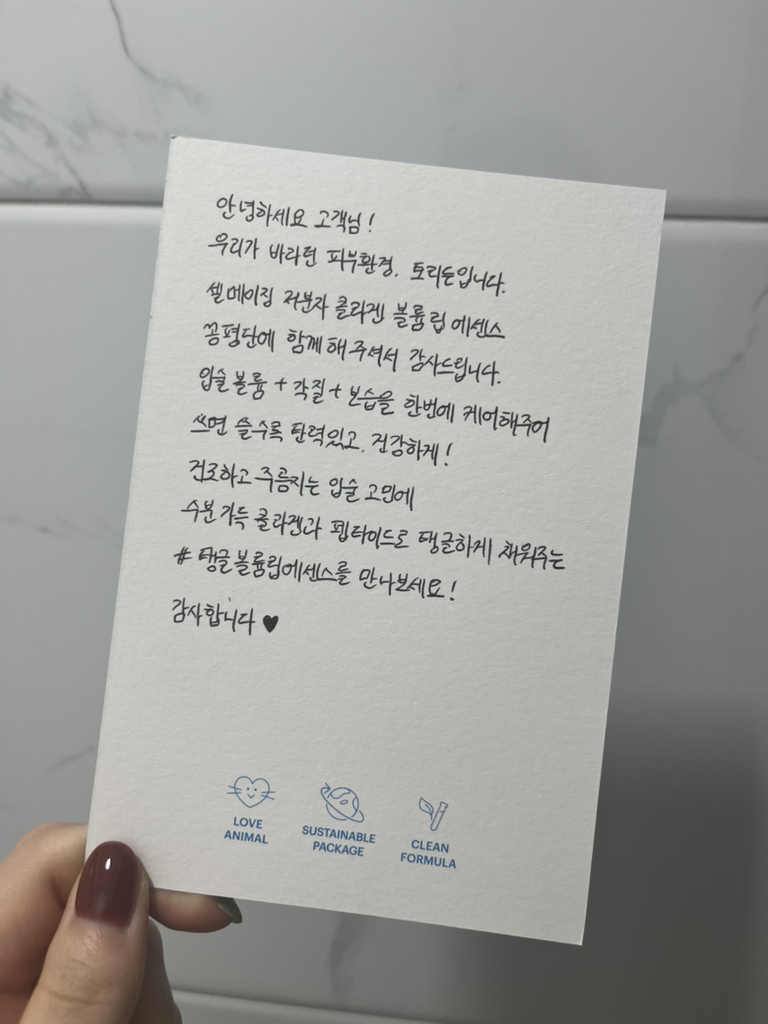 안녕하세요 고객님!
우리가 바라던 피부환경. 토리든입니다.
셀메이징 저분자 콜라겐 볼륨립에센스
공평단에 함께해주셔서 감사드립니다.
입술볼륨 + 각질 + 보습을 한번에 케어해주어
쓰면 쓸수록 탄력있고, 건강하게!
건조하고 주름지는 입술 고민에
수분가득 콜라겐과 펩타이드로 탱글하게 채워주는
# 탱글볼륨립에센스를 만나보세요!
감사합니다 ♥
LOVE
ANIMAL
SUSTAINABLE
PACKAGE
CLEAN
FORMULA